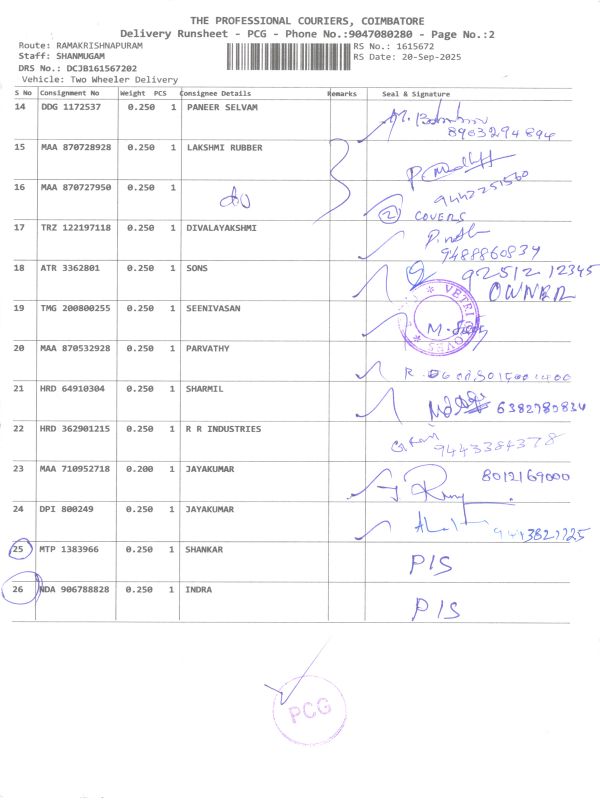 THE PROFESSIONAL COURIERS, COIMBATORE
Delivery Runsheet - PCG - Phone No.:9047080280 - Page No.:2
Route: RAMAKRISHNAPURAM RS No.: 1615672
Staff: SHANMUGAM RS Date: 20-Sep-2025
DRS No.: DCJB161567202
Vehicle: Two Wheeler Delivery
S No Consignment No Weight PCS Consignee Details Remarks Seal & Signature
14 DDG 1172537 0.250 1 PANEER SELVAM
8903294894
15 MAA 870728928 0.250 1 LAKSHMI RUBBER
16 MAA 870727950 0.250 1
9442251560
2 COVERS
17 TRZ 122197118 0.250 1 DIVALAYAKSHMI
9488860834
18 ATR 3362801 0.250 1 SONS
92512 12345
OWNER
19 TMG 200800255 0.250 1 SEENIVASAN
VETRI
20 MAA 870532928 0.250 1 PARVATHY
21 HRD 64910304 0.250 1 SHARMIL
6382782834
22 HRD 362901215 0.250 1 R R INDUSTRIES
9443384378
23 MAA 710952718 0.200 1 JAYAKUMAR
8012169000
24 DPI 800249 0.250 1 JAYAKUMAR
25 MTP 1383966 0.250 1 SHANKAR P/S
26 NDA 906788828 0.250 1 INDRA P/S
PCG